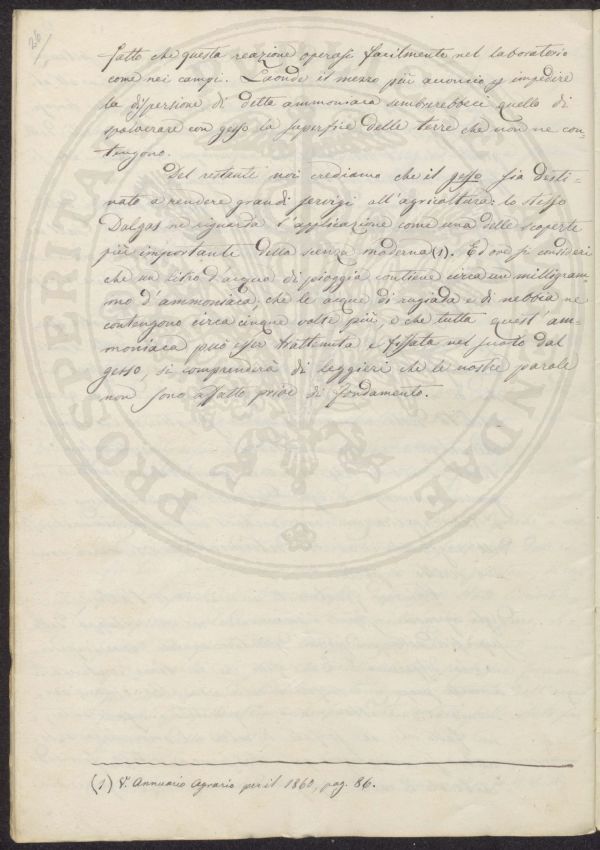 26
fatto che questa reazione operasi facilmente nel laboratorio
come nei campi. Laonde il mezzo più acconcio ad impedire
la dispersione di detta ammoniaca sembrerebbeci quello di
spolverare con gesso la superficie delle terre che non ne con-
tengono.
Del restante noi crediamo che il gesso sia desti-
nato a rendere grandi servigi all'agricoltura: lo stesso
Dalgas ne riguarda l'applicazione come una delle scoperte
più importante della scienza moderna (1). Ed ove si consideri
che un litro d'acqua di pioggia contiene circa un milligram-
mo d'ammoniaca, che le acque di rugiada e di nebbia ne
contengono circa cinque volte più, e che tutta quest'am-
moniaca può esser trattenuta e fissata nel suolo dal
gesso, si comprenderà di leggieri che le nostre parole
non sono affatto prive di fondamento.
(1) V. Annuario Agrario per il 1860, pag. 86.
PROSPERITA
NDAE